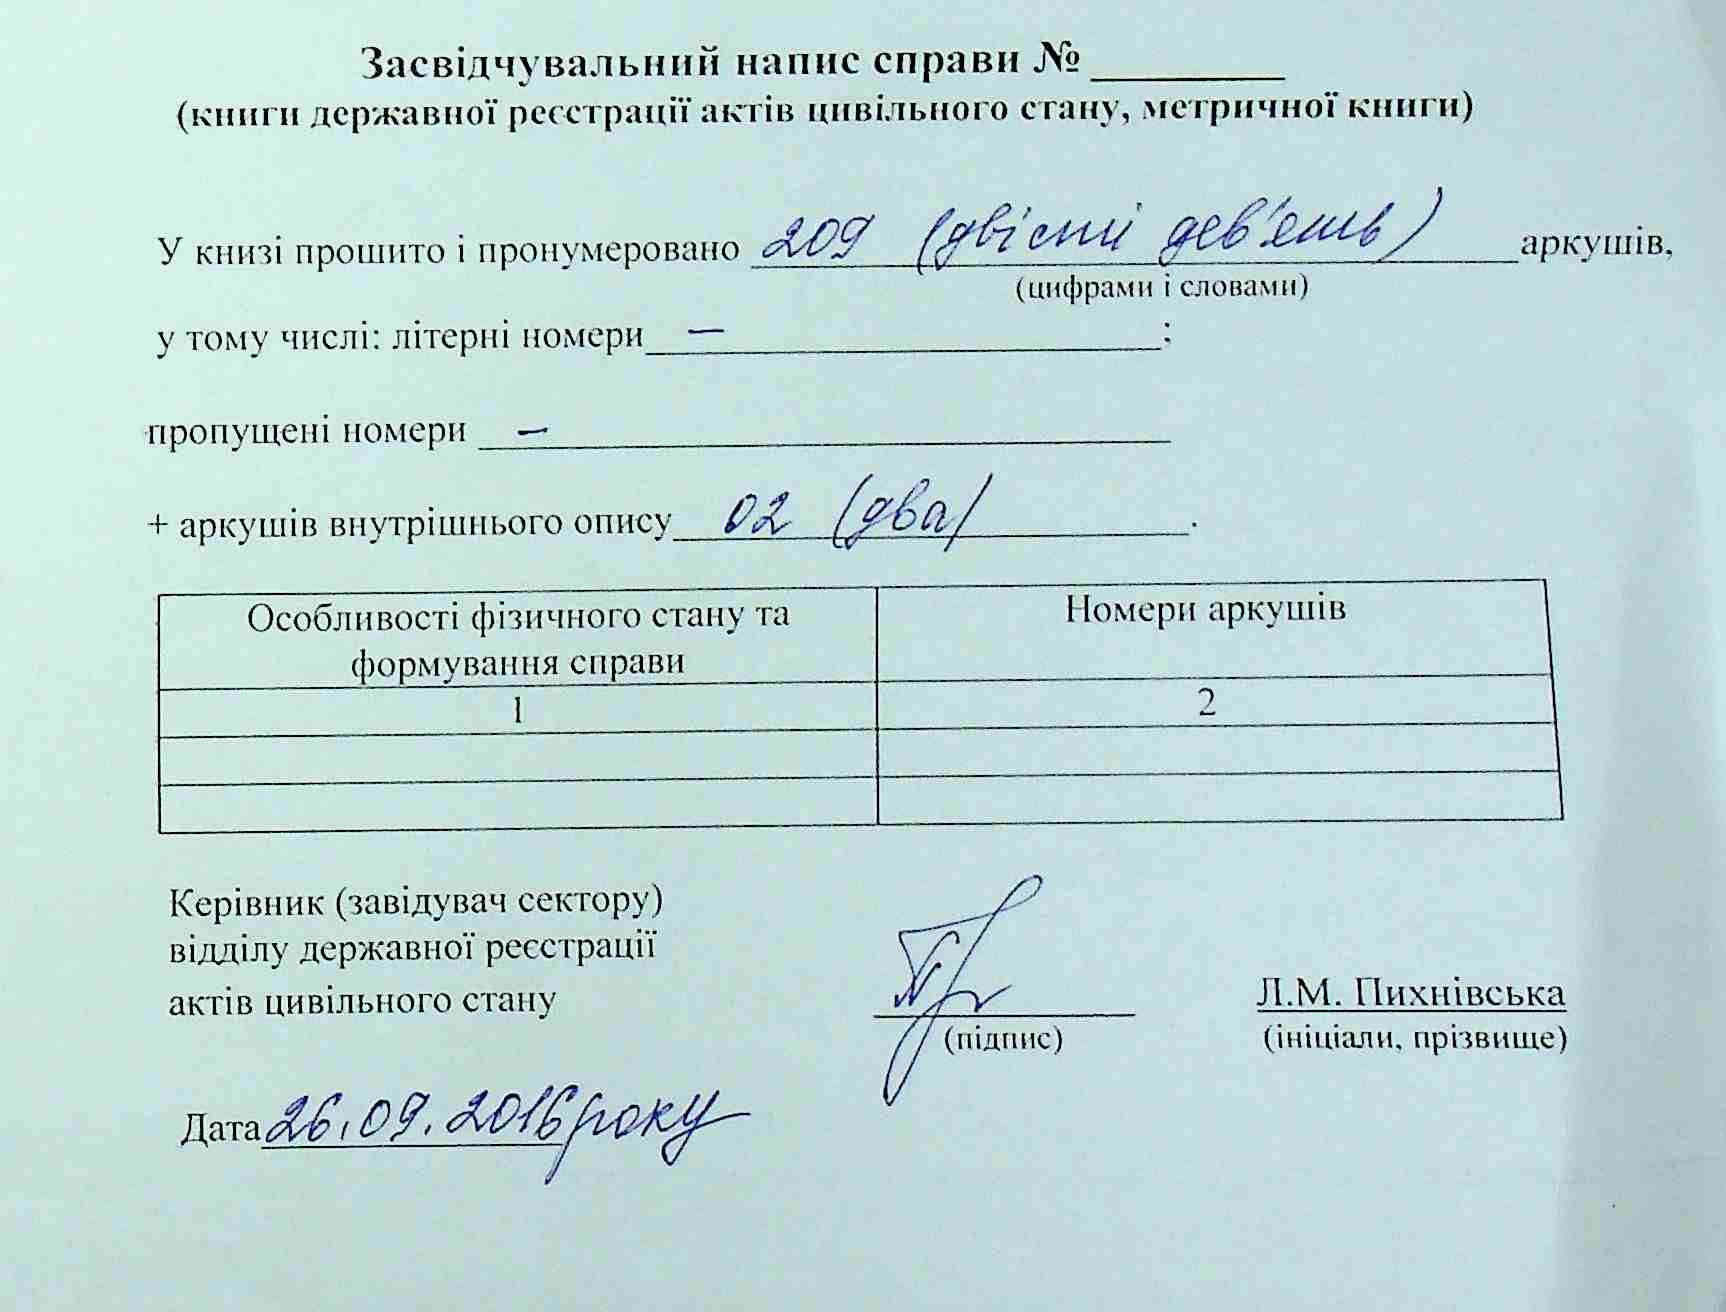 Засвідчувальний напис справи № ________
(книги державної реєстрації актів цивільного стану, метричної книги)
У книзі прошито і пронумеровано 209 (двісті дев'ять) аркушів,
(цифрами і словами)
у тому числі: літерні номери — ;
пропущені номери —
+ аркушів внутрішнього опису 02 (два) .
Особливості фізичного стану та Номери аркушів
формування справи
1 2
Керівник (завідувач сектору)
відділу державної реєстрації
актів цивільного стану Л.М. Пихнівська
(підпис) (ініціали, прізвище)
Дата 26.09.2016 року